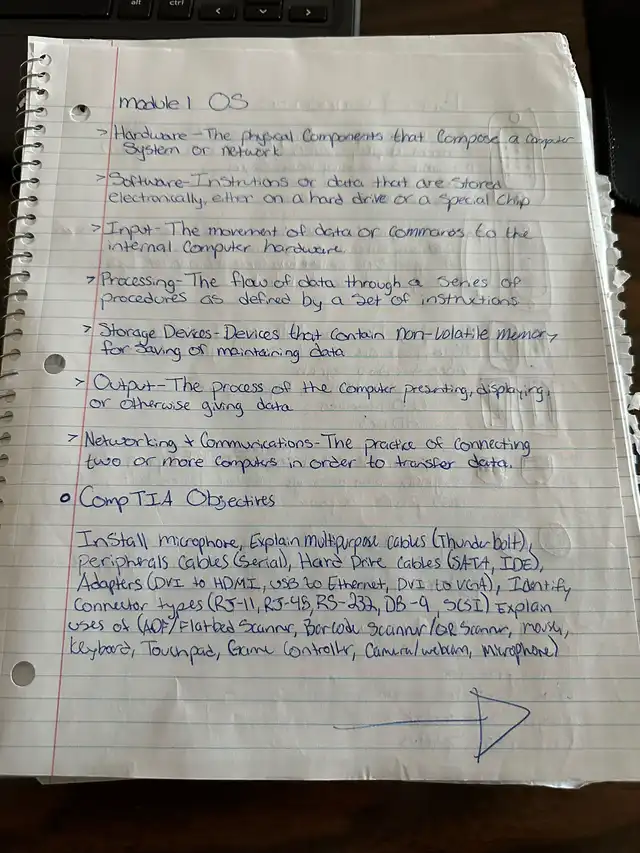 alt ctrl
Module 1 OS
> Hardware - The physical components that compose a computer
system or network
> Software - Instrutions or data that are stored
electronically, either on a hard drive or a special chip
> Input - The movement of data or commands to the
internal computer hardware.
> Processing - The flow of data through a series of
procedures as defined by a set of instructions
> Storage Devices - Devices that contain non-volatile memory
for saving of maintaining data
> Output - The process of the computer presenting, displaying,
or otherwise giving data
> Networking + Communications - The practice of connecting
two or more computers in order to transfer data.
CompTIA Objectives
Install microphone, Explain multipurpose cables (Thunderbolt),
peripherals cables (Serial), Hard Drive cables (SATA, IDE),
Adapters (DVI to HDMI, USB to Ethernet, DVI to VGA), Identify
connector types (RJ-11, RJ-45, RS-232, DB-9, SCSI) Explain
uses of (ADF/Flatbed Scanner, Barcode Scanner/QR Scanner, mouse,
Keyboard, Touchpad, Game Controller, Camera/webcam, microphone)